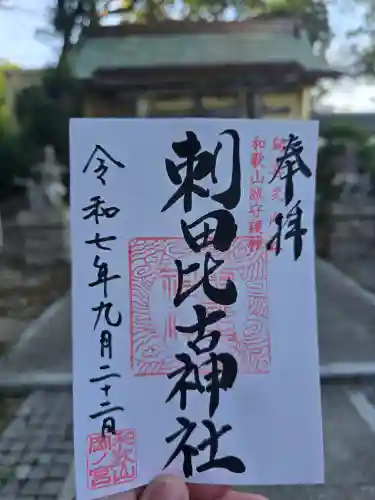 奉拝
和歌山城守護神
刺田比古神社
令和七年九月二十二日
和歌山
岡ノ宮